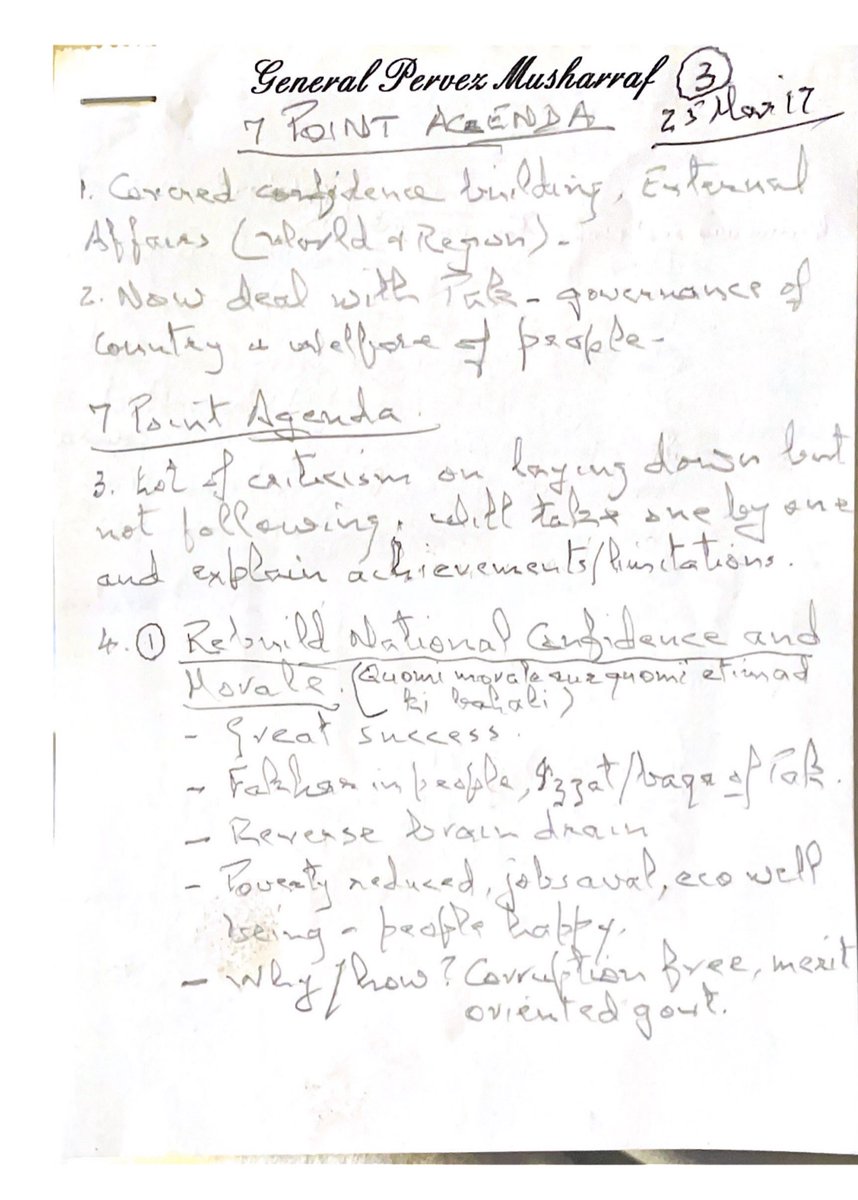 General Pervez Musharraf 3
7 POINT AGENDA 25 Mar 17
1. Covered confidence building, External
Affairs (World & Region) -
2. Now deal with Pak - governance of
country & welfare of people -
7 Point Agenda.
3. Lot of criticism on laying down but
not following. Will take one by one
and explain achievements/limitations.
4. 1 Rebuild National Confidence and
Morale. (Quomi morale aur quomi etimad
ki bahali)
- Great success.
- Fakhar in people, Izzat/baqa of Pak.
- Reverse brain drain
- Poverty reduced, jobs aval, eco well
being - people happy.
- Why/how? Corruption free, merit
oriented govt.